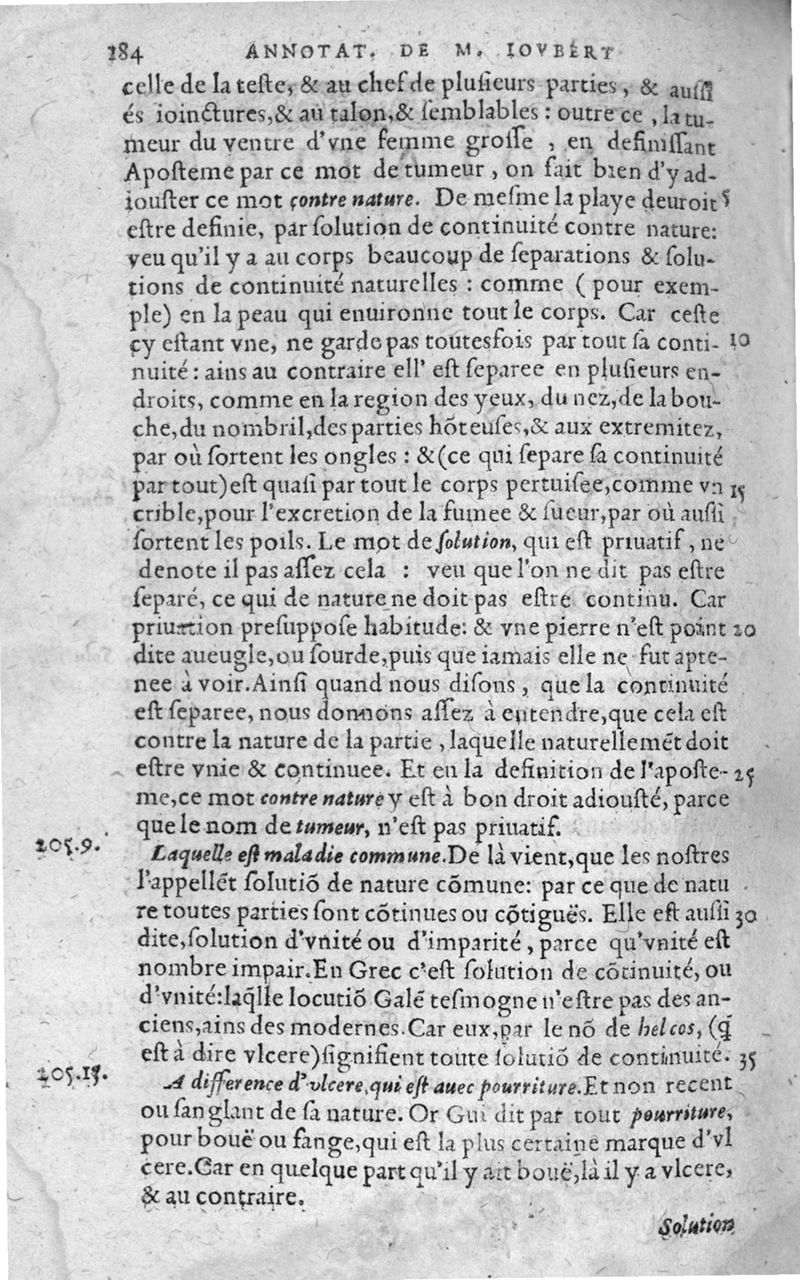 284 ANNOTAT. DE M. IOVBERT
celle de la teste, & au chef de plusieurs parties, & aussi
és ioinctures, & au talon, & semblables : outre ce, la tu-
meur du ventre d'vne femme grosse, en definissant
Aposteme par ce mot de tumeur, on fait bien d'y ad-
iouster ce mot contre nature. De mesme la playe deuroit 5
estre definie, par solution de continuité contre nature:
veu qu'il y a au corps beaucoup de separations & solu-
tions de continuité naturelles : comme ( pour exem-
ple) en la peau qui enuironne tout le corps. Car ceste
cy estant vne, ne garde pas toutesfois par tout sa conti- 10
nuité : ains au contraire ell' est separee en plusieurs en-
droits, comme en la region des yeux, du nez, de la bou-
che, du nombril, des parties hõteuses, & aux extremitez,
par où sortent les ongles : & (ce qui separe sa continuité
par tout) est quasi par tout le corps pertuisee, comme vn 15
crible, pour l'excretion de la fumee & sueur, par où aussi
sortent les poils. Le mot de solution, qui est priuatif, ne
denote il pas assez cela : veu que l'on ne dit pas estre
separé, ce qui de nature ne doit pas estre continu. Car
priuation presuppose habitude: & vne pierre n'est point 20
dite aueugle, ou sourde, puis que iamais elle ne fut apte-
nee à voir. Ainsi quand nous disons, que la continuité
est separee, nous donnons assez à entendre, que cela est
contre la nature de la partie, laquelle naturellemẽt doit
estre vnie & continuee. Et en la definition de l'aposte- 25
me, ce mot contre nature y est à bon droit adiousté, parce
que le nom de tumeur, n'est pas priuatif.
205.9. Laquelle est maladie commune. De là vient, que les nostres
l'appellẽt solutiõ de nature cõmune: par ce que de natu
re toutes parties sont cõtinues ou cõtiguës. Elle est aussi 30
dite, solution d'vnité ou d'imparité, parce qu'vnité est
nombre impair. En Grec c'est solution de cõtinuité, ou
d'vnité: laq̃lle locutiõ Galẽ tesmogne n'estre pas des an-
ciens, ains des modernes. Car eux, par le nõ de helcos, (q̃
est à dire vlcere) signifient toute solutiõ de continuité. 35
205.15. A difference d'vlcere, qui est auec pourriture. Et non recent
ou sanglant de sa nature. Or Gui dit par tout pourriture,
pour bouë ou fange, qui est la plus certaine marque d'vl
cere. Car en quelque part qu'il y ait bouë, là il y a vlcere,
& au contraire.
Solution